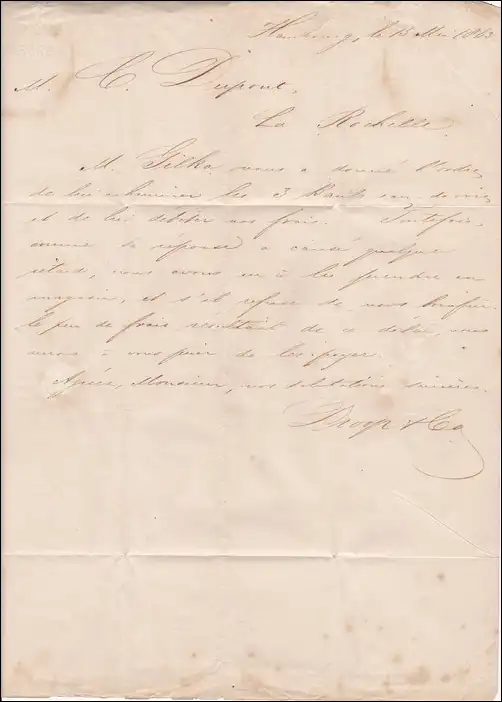 Hambourg, le 15 Mai 1863
M. C. Dupont,
La Rochelle.
M. Gilka nous a donné l'ordre
de lui acheminer les 3 Barils eau de vie
et de lui débiter nos frais. Toutefois,
comme sa réponse a causé quelque
retard, nous avons eu à les prendre en
magasin, et s'il refuse de nous bonifier
le peu de frais résultant de ce délai, nous
aurons à vous prier de les payer.
Agréez, Monsieur, nos salutations sincères.
Droop & Co